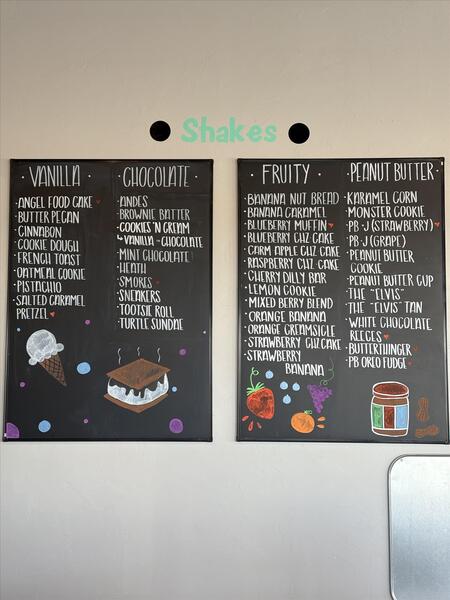 Shakes
· VANILLA ·
· ANGEL FOOD CAKE
· BUTTER PECAN
· CINNABON
· COOKIE DOUGH
· FRENCH TOAST
· OATMEAL COOKIE
· PISTACHIO
· SALTED CARAMEL
PRETZEL
CHOCOLATE ·
· ANDES
· BROWNIE BATTER
· COOKIES 'N CREAM
↳ VANILLA - CHOCOLATE
· MINT CHOCOLATE
· HEATH
· SMORES
· SNEAKERS
· TOOTSIE ROLL
· TURTLE SUNDAE
· FRUITY ·
· BANANA NUT BREAD
· BANANA CARAMEL
· BLUEBERRY MUFFIN
· BLUEBERRY CHZ CAKE
· CARM APPLE CHZ CAKE
· RASPBERRY CHZ CAKE
· CHERRY DILLY BAR
· LEMON COOKIE
· MIXED BERRY BLEND
· ORANGE BANANA
· ORANGE CREAMSICLE
· STRAWBERRY CHZCAKE
· STRAWBERRY
BANANA
PEANUT BUTTER ·
· KARAMEL CORN
· MONSTER COOKIE
· PB·J (STRAWBERRY)
· PB·J (GRAPE)
· PEANUT BUTTER
COOKIE
· PEANUT BUTTER CUP
· THE "ELVIS"
· THE "ELVIS" TAN
· WHITE CHOCOLATE
REECES
· BUTTERFHINGER
· PB OREO FUDGE